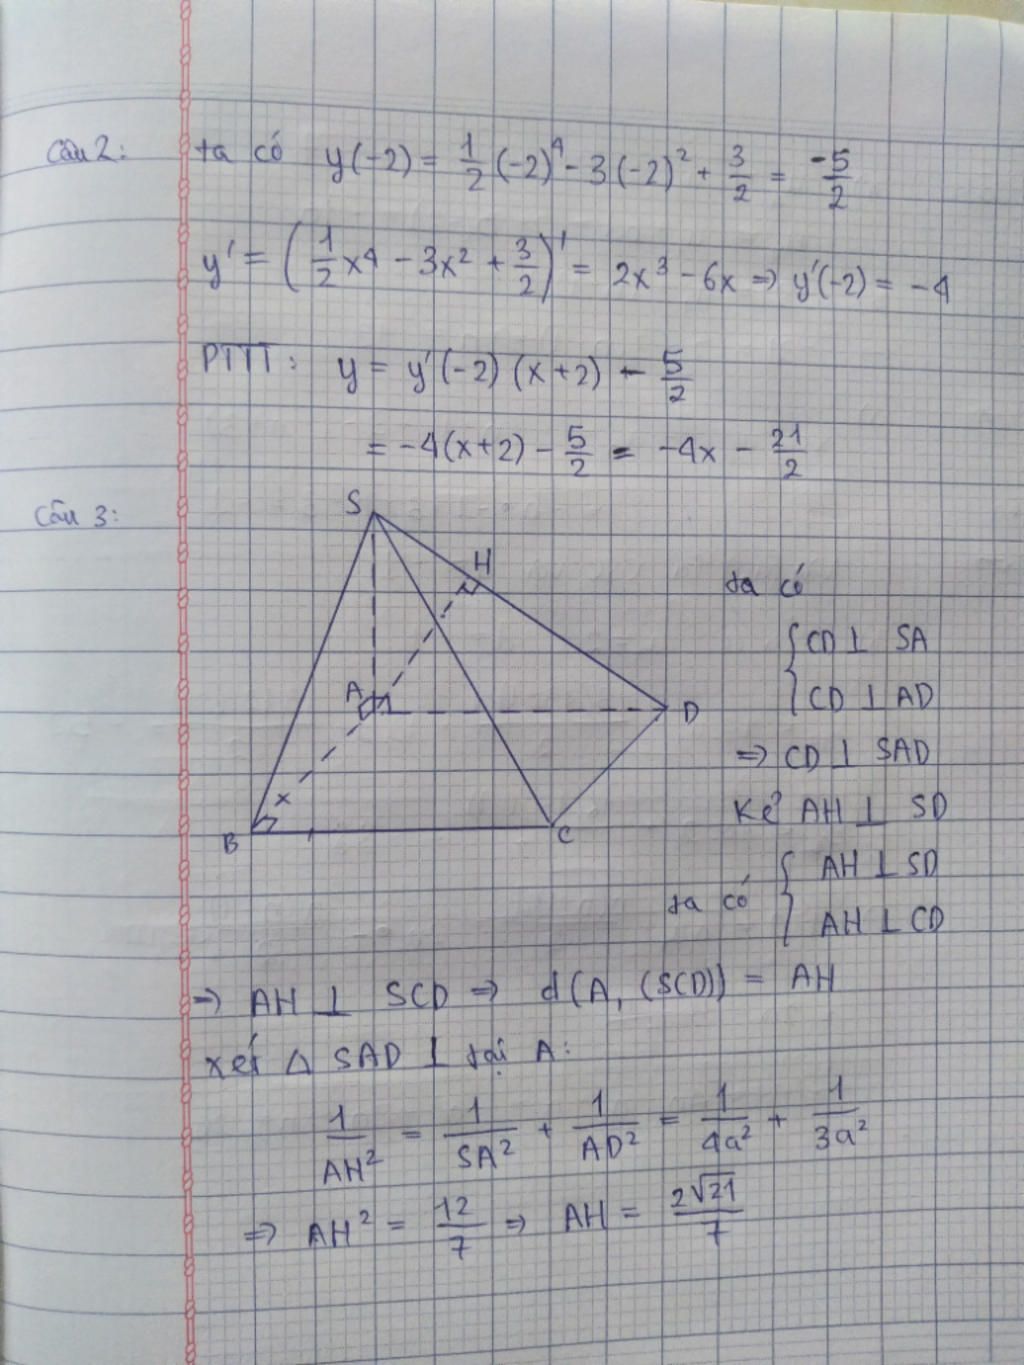 Câu 2: ta có y(-2) = 1/2 (-2)^4 - 3(-2)^2 + 3/2 = -5/2
y' = (1/2 x^4 - 3x^2 + 3/2)' = 2x^3 - 6x => y'(-2) = -4
PTTT: y = y'(-2) (x+2) - 5/2
= -4(x+2) - 5/2 = -4x - 21/2
Câu 3:
S
H
A
D
x
B
C
ta có
{ CD ⊥ SA
CD ⊥ AD
=> CD ⊥ SAD
Kẻ AH ⊥ SD
ta có { AH ⊥ SD
AH ⊥ CD
=> AH ⊥ SCD => d(A, (SCD)) = AH
xét Δ SAD ⊥ tại A:
1/AH^2 = 1/SA^2 + 1/AD^2 = 1/4a^2 + 1/3a^2
=> AH^2 = 12/7 => AH = 2√21/7